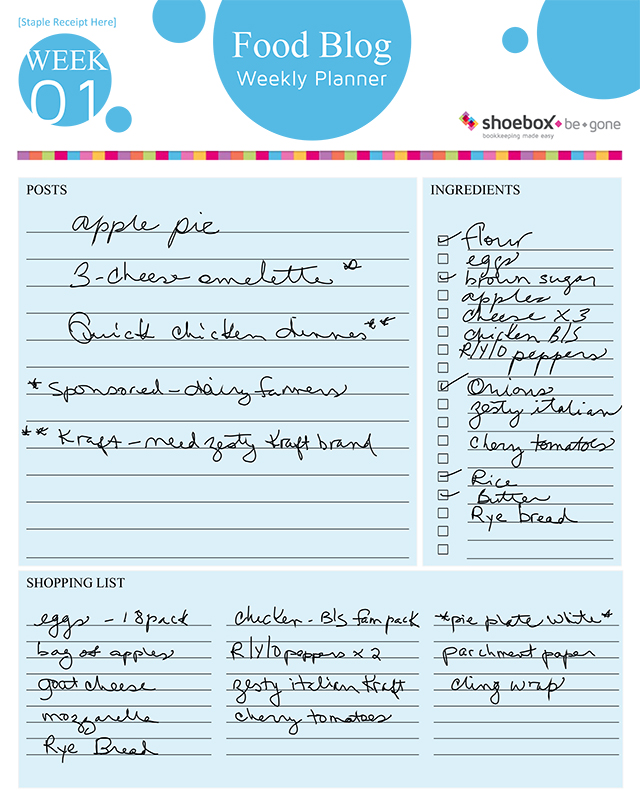 [Staple Receipt Here]
WEEK
01
Food Blog
Weekly Planner
shoebox be gone
bookkeeping made easy
POSTS
apple pie
3-cheese omelette *
Quick chicken dinner **
* sponsored - dairy farmers
** Kraft - need zesty Kraft brand
INGREDIENTS
flour
eggs
brown sugar
apples
cheese x 3
chicken B/S
R/Y/O peppers
Onions
zesty italian
cherry tomatoes
Rice
Butter
Rye bread
SHOPPING LIST
eggs - 18 pack
bag of apples
goat cheese
mozzarella
Rye Bread
chicken - B/S fam pack
R/Y/O peppers x 2
zesty italian Kraft
cherry tomatoes
*pie plate white*
parchment paper
cling wrap